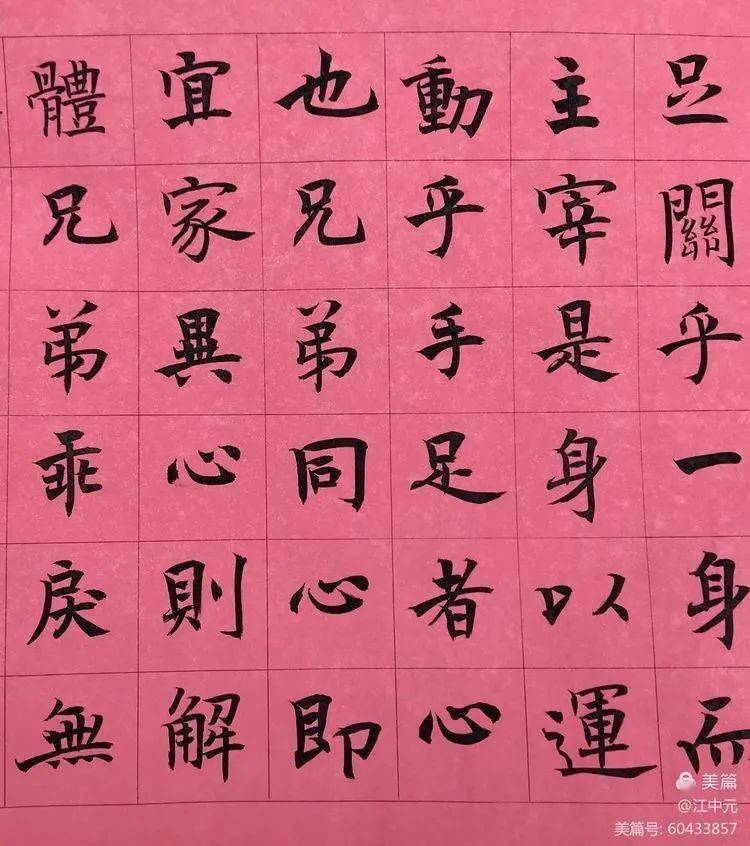 足關乎一身而
主宰是身以運
動乎手足者心
也兄弟同心即
宜家異心則解
體兄弟乖戾無
美篇
@江中元
美篇号: 60433857